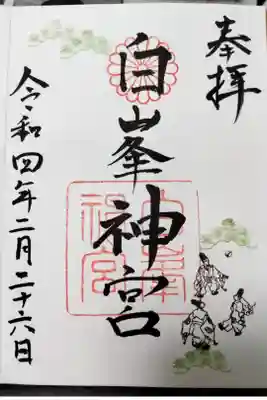 奉拝
白峯神宮
令和四年二月二十六日